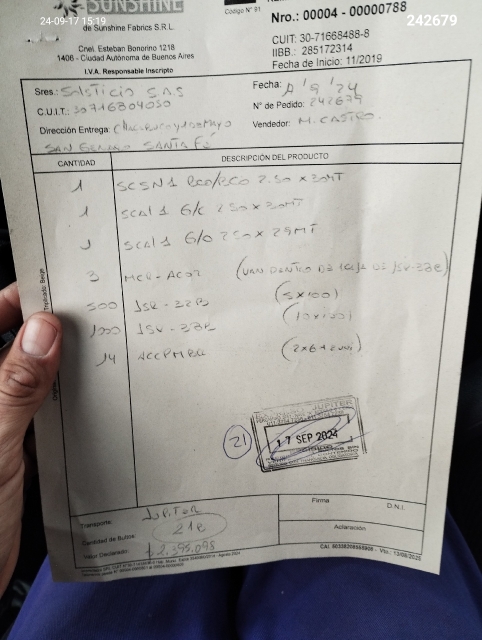 24-09-17 15:19
242679
SUNSHINE
de Sunshine Fabrics S.R.L.
Cnel. Esteban Bonorino 1218
1406 - Ciudad Autónoma de Buenos Aires
I.V.A. Responsable Inscripto
Código N° 91
Nro.: 00004 - 00000788
CUIT: 30-71668488-8
IIBB.: 285172314
Fecha de Inicio: 11/2019
Sres.: Solsticio SAS
C.U.I.T.: 30716804050
Dirección Entrega:
SAN GENARO SANTA FÉ
Fecha: 9 '24
N° de Pedido: 242679
Vendedor: M. CASTRO
CANTIDAD
DESCRIPCIÓN DEL PRODUCTO
1 SCSN1 2.50 x 30MT
1 SCAL1 G/C 2.50 x 30MT
1 SCAL1 G/O 2.50 x 25MT
3 MCR-AC02 (VAN DENTRO DE 1 CAJA DE JSV-33B)
500 (5x100)
1000 JSV-33B (10x100)
14 ACCPMBR
JUPITER
17 SEP 2024
21
Transporte: JUPITER
Cantidad de Bultos: 21B
Valor Declarado: $2.395.098
Firma
D.N.I.
Aclaración